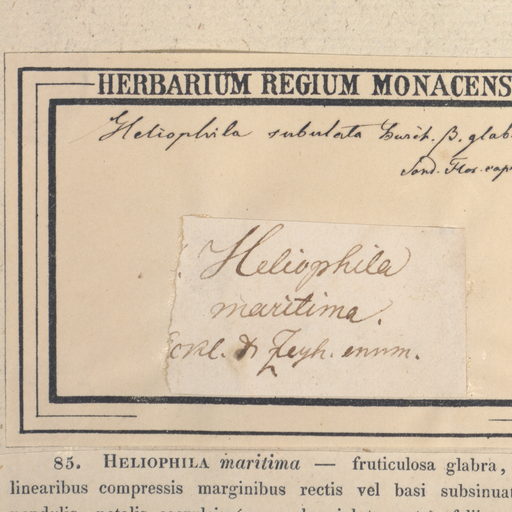 HERBARIUM REGIUM MONACENS
Heliophila subulata Burch. β. glab
Sond. Flor. cap
Heliophila
maritima.
Eckl. & Zeyh. enum.
85. HELIOPHILA maritima — fruticulosa glabra,
linearibus compressis marginibus rectis vel basi subsinuat